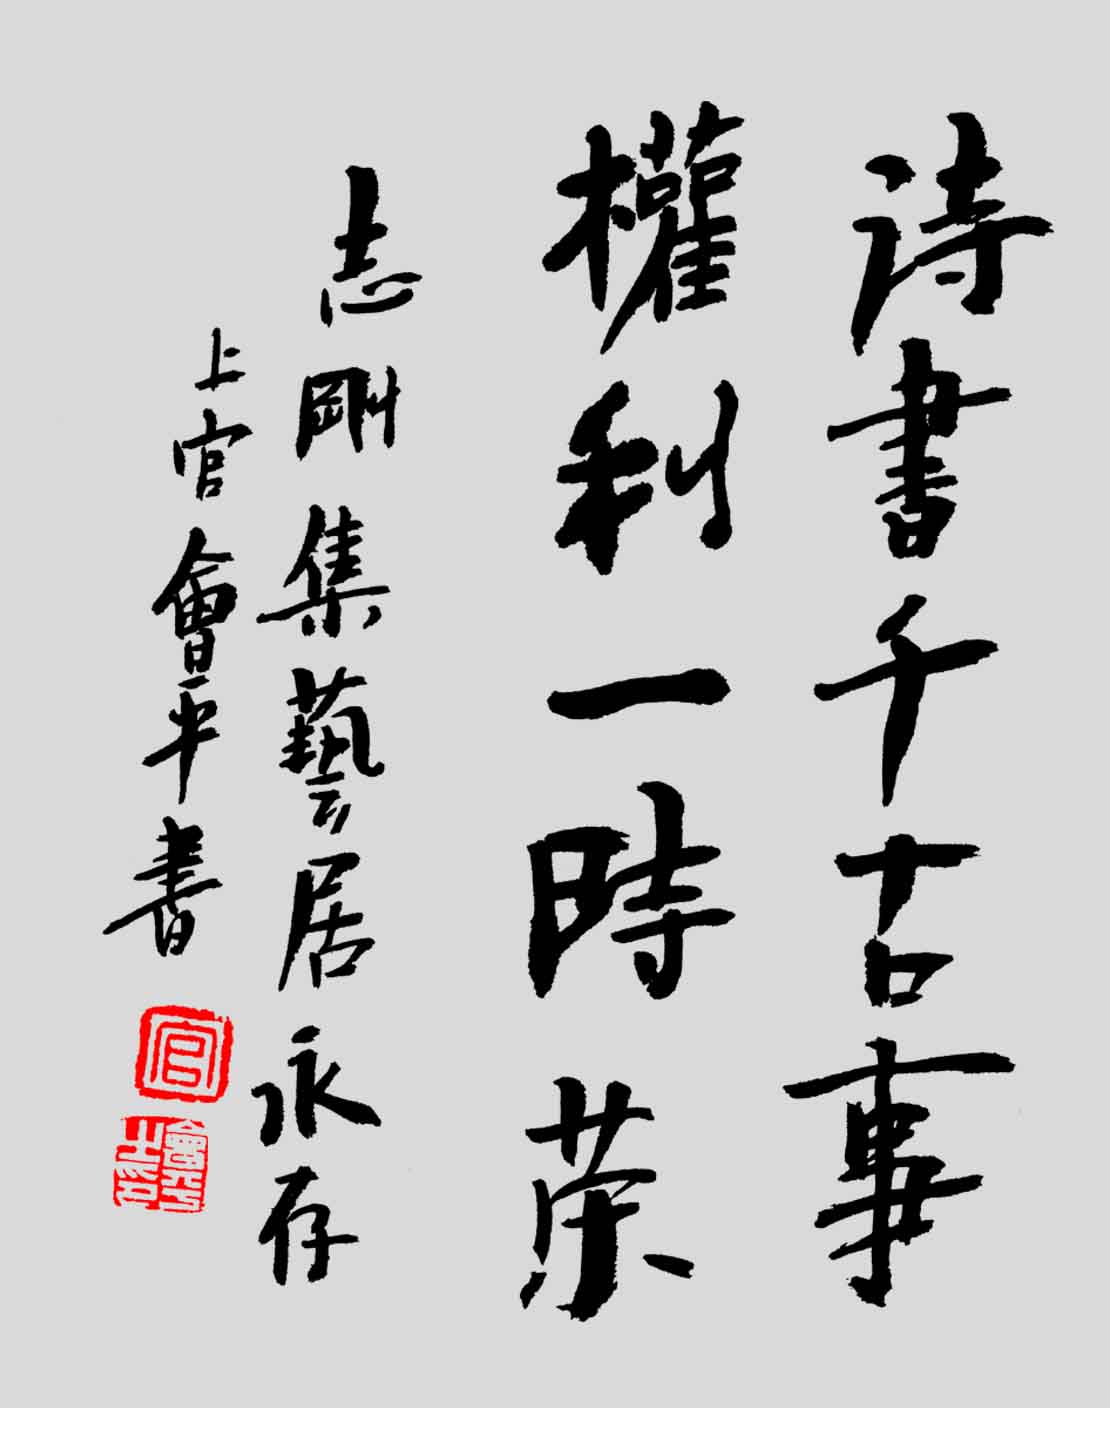 詩書千古事
權利一時荣
志剛集藝居永存
上官會平書
官
會平之印